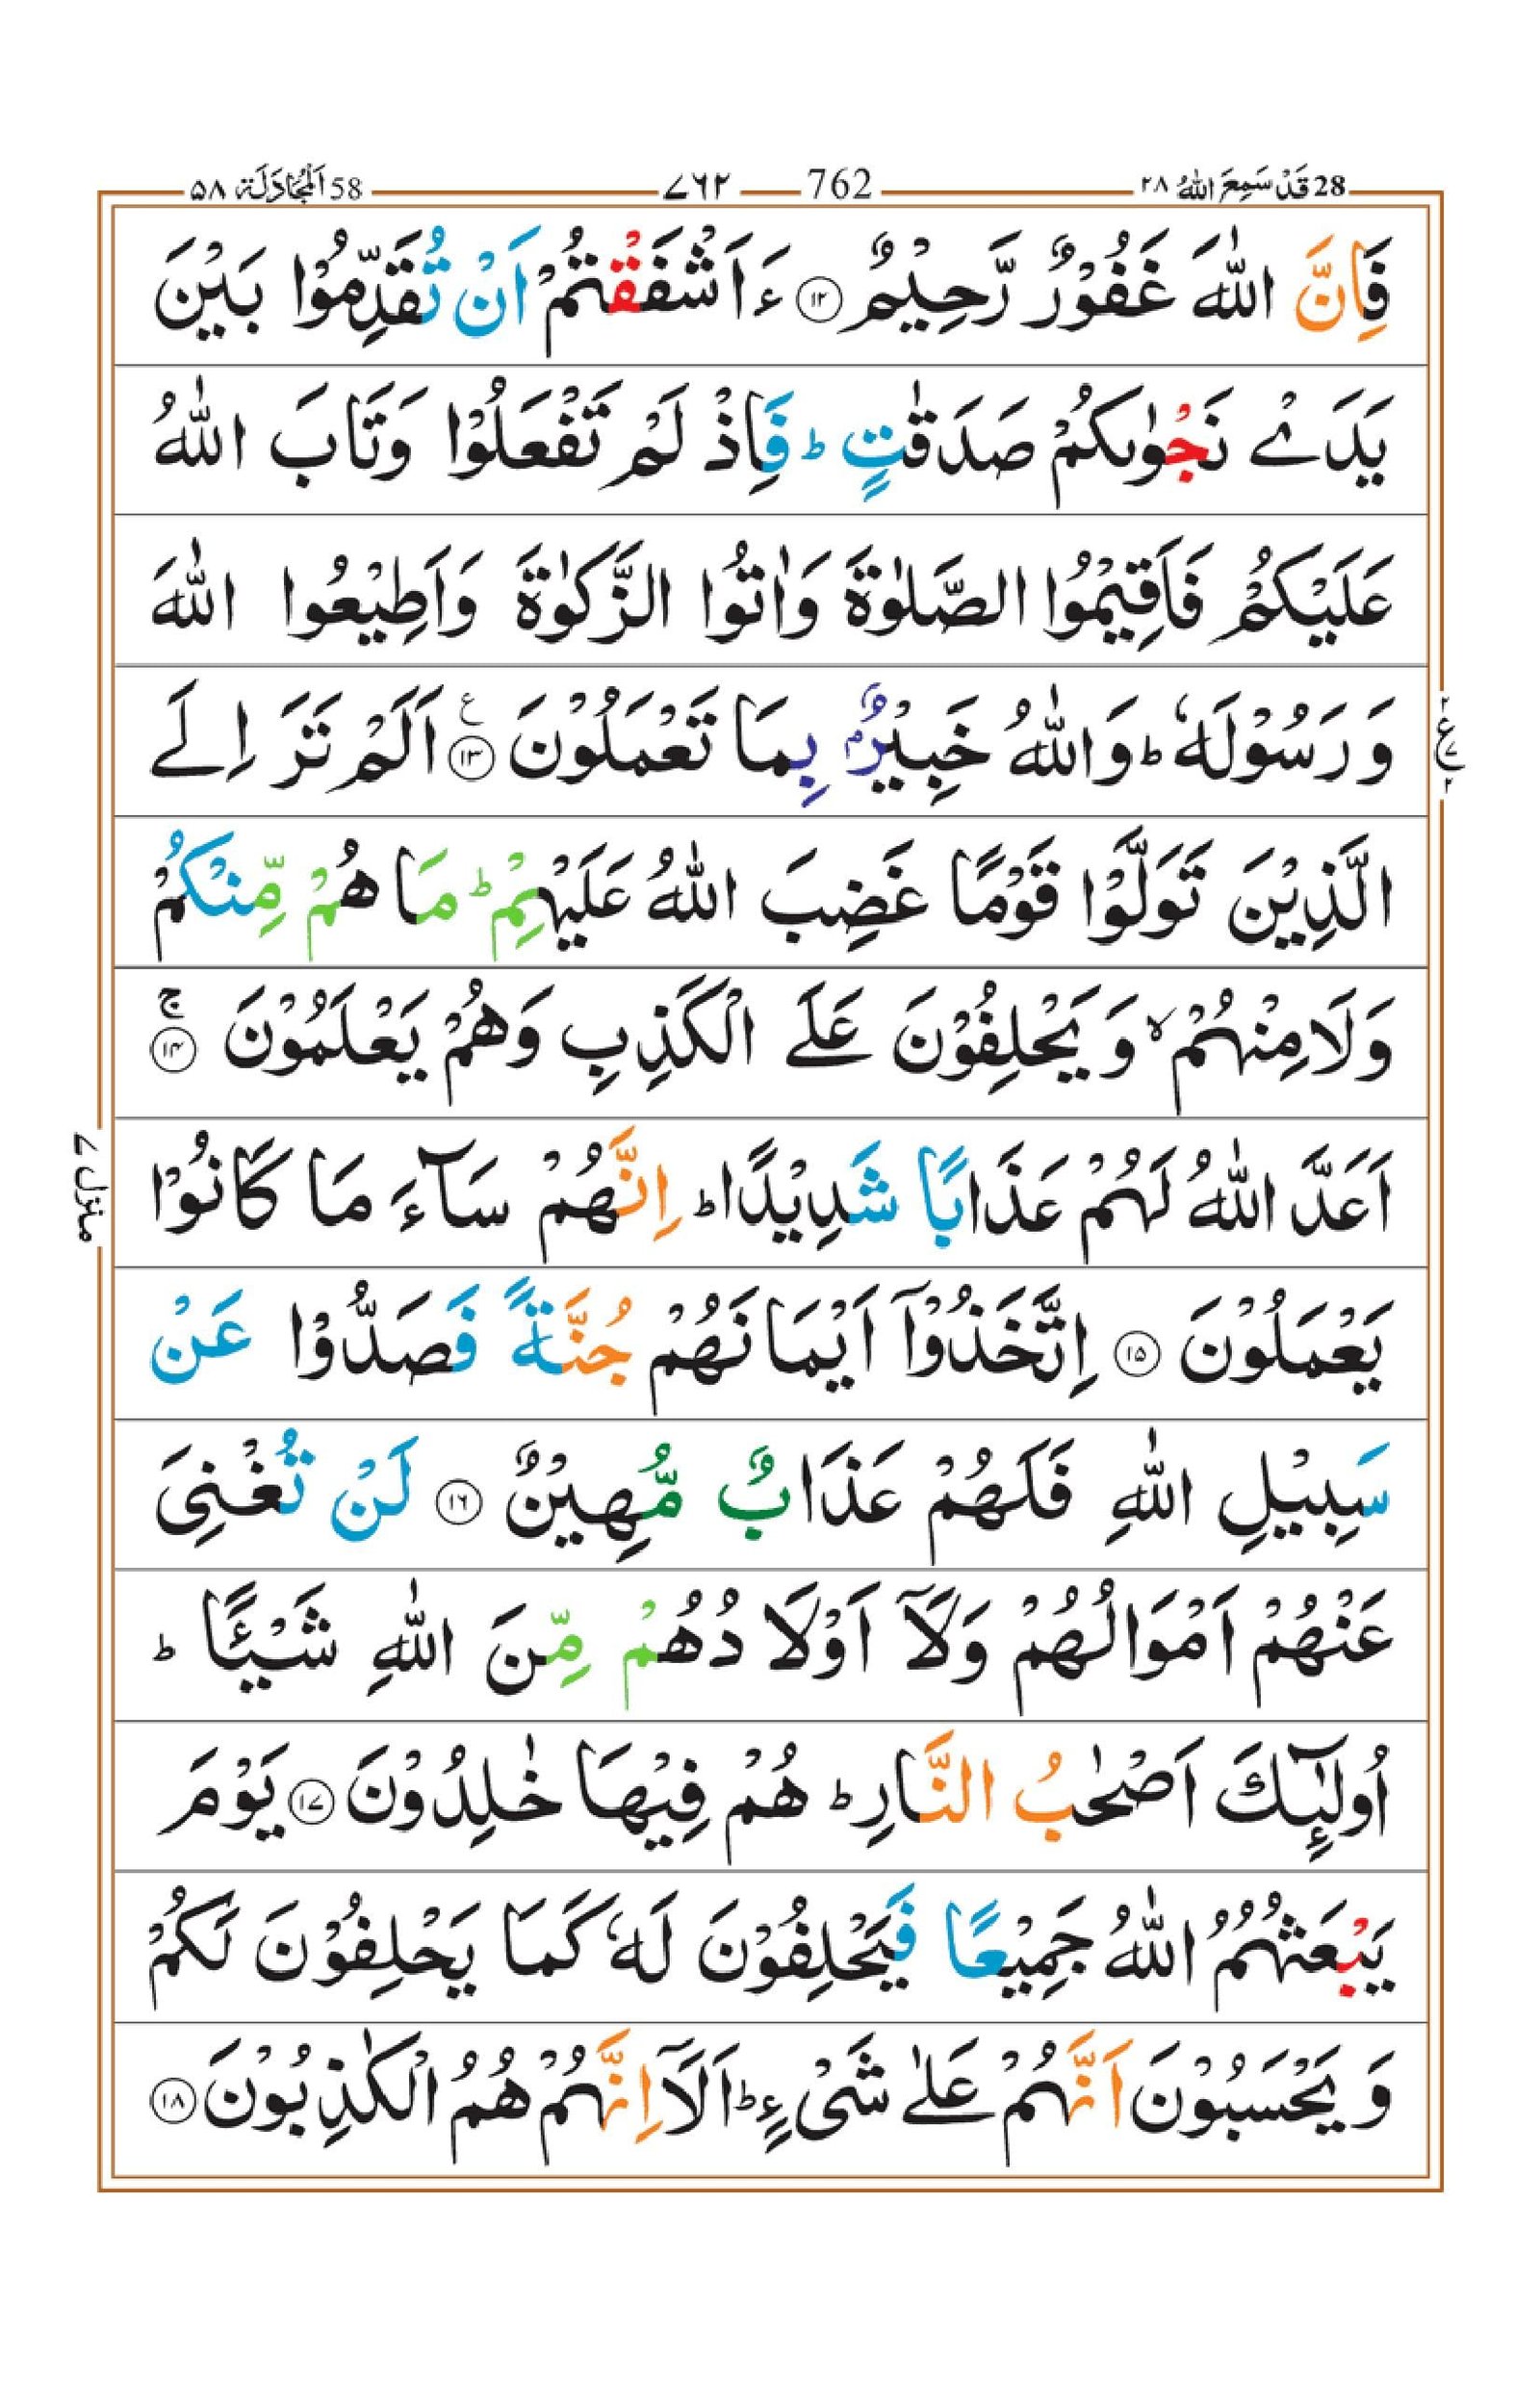 28 قَدْ سَمِعَ اللّٰهُ ۲۸ 762 ۷۶۲ 58 اَلْمُجَادَلَة ۵۸
فَاِنَّ اللّٰهَ غَفُوْرٌ رَّحِيْمٌ ۝۱۲ ءَاَشْفَقْتُمْ اَنْ تُقَدِّمُوْا بَيْنَ
يَدَىْ نَجْوٰىكُمْ صَدَقٰتٍ ؕ فَاِذْ لَمْ تَفْعَلُوْا وَتَابَ اللّٰهُ
عَلَيْكُمْ فَاَقِيْمُوا الصَّلٰوةَ وَاٰتُوا الزَّكٰوةَ وَاَطِيْعُوا اللّٰهَ
وَرَسُوْلَهٗ ؕ وَاللّٰهُ خَبِيْرٌۢ بِمَا تَعْمَلُوْنَ ۝۱۳ ع اَلَمْ تَرَ اِلَى
الَّذِيْنَ تَوَلَّوْا قَوْمًا غَضِبَ اللّٰهُ عَلَيْهِمْ ؕ مَا هُمْ مِّنْكُمْ
وَلَا مِنْهُمْ ۙ وَيَحْلِفُوْنَ عَلَى الْكَذِبِ وَهُمْ يَعْلَمُوْنَ ۝۱۴ ج
اَعَدَّ اللّٰهُ لَهُمْ عَذَابًا شَدِيْدًا ؕ اِنَّهُمْ سَآءَ مَا كَانُوْا
يَعْمَلُوْنَ ۝۱۵ اِتَّخَذُوْۤا اَيْمَانَهُمْ جُنَّةً فَصَدُّوْا عَنْ
سَبِيْلِ اللّٰهِ فَلَهُمْ عَذَابٌ مُّهِيْنٌ ۝۱۶ لَنْ تُغْنِىَ
عَنْهُمْ اَمْوَالُهُمْ وَلَاۤ اَوْلَادُهُمْ مِّنَ اللّٰهِ شَيْـًٔا ؕ
اُولٰٓئِكَ اَصْحٰبُ النَّارِ ؕ هُمْ فِيْهَا خٰلِدُوْنَ ۝۱۷ يَوْمَ
يَبْعَثُهُمُ اللّٰهُ جَمِيْعًا فَيَحْلِفُوْنَ لَهٗ كَمَا يَحْلِفُوْنَ لَكُمْ
وَيَحْسَبُوْنَ اَنَّهُمْ عَلٰى شَىْءٍ ؕ اَلَاۤ اِنَّهُمْ هُمُ الْكٰذِبُوْنَ ۝۱۸
منزل ۷